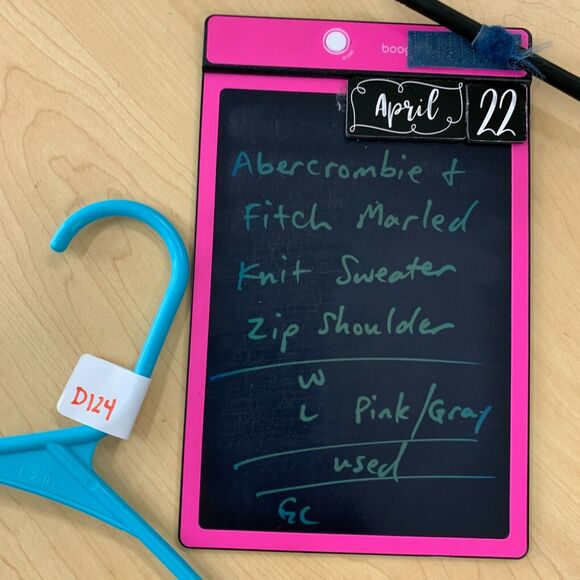 April 22
Abercrombie +
Fitch Marled
Knit Sweater
Zip Shoulder
W
L Pink/Gray
used
GC
D124
120